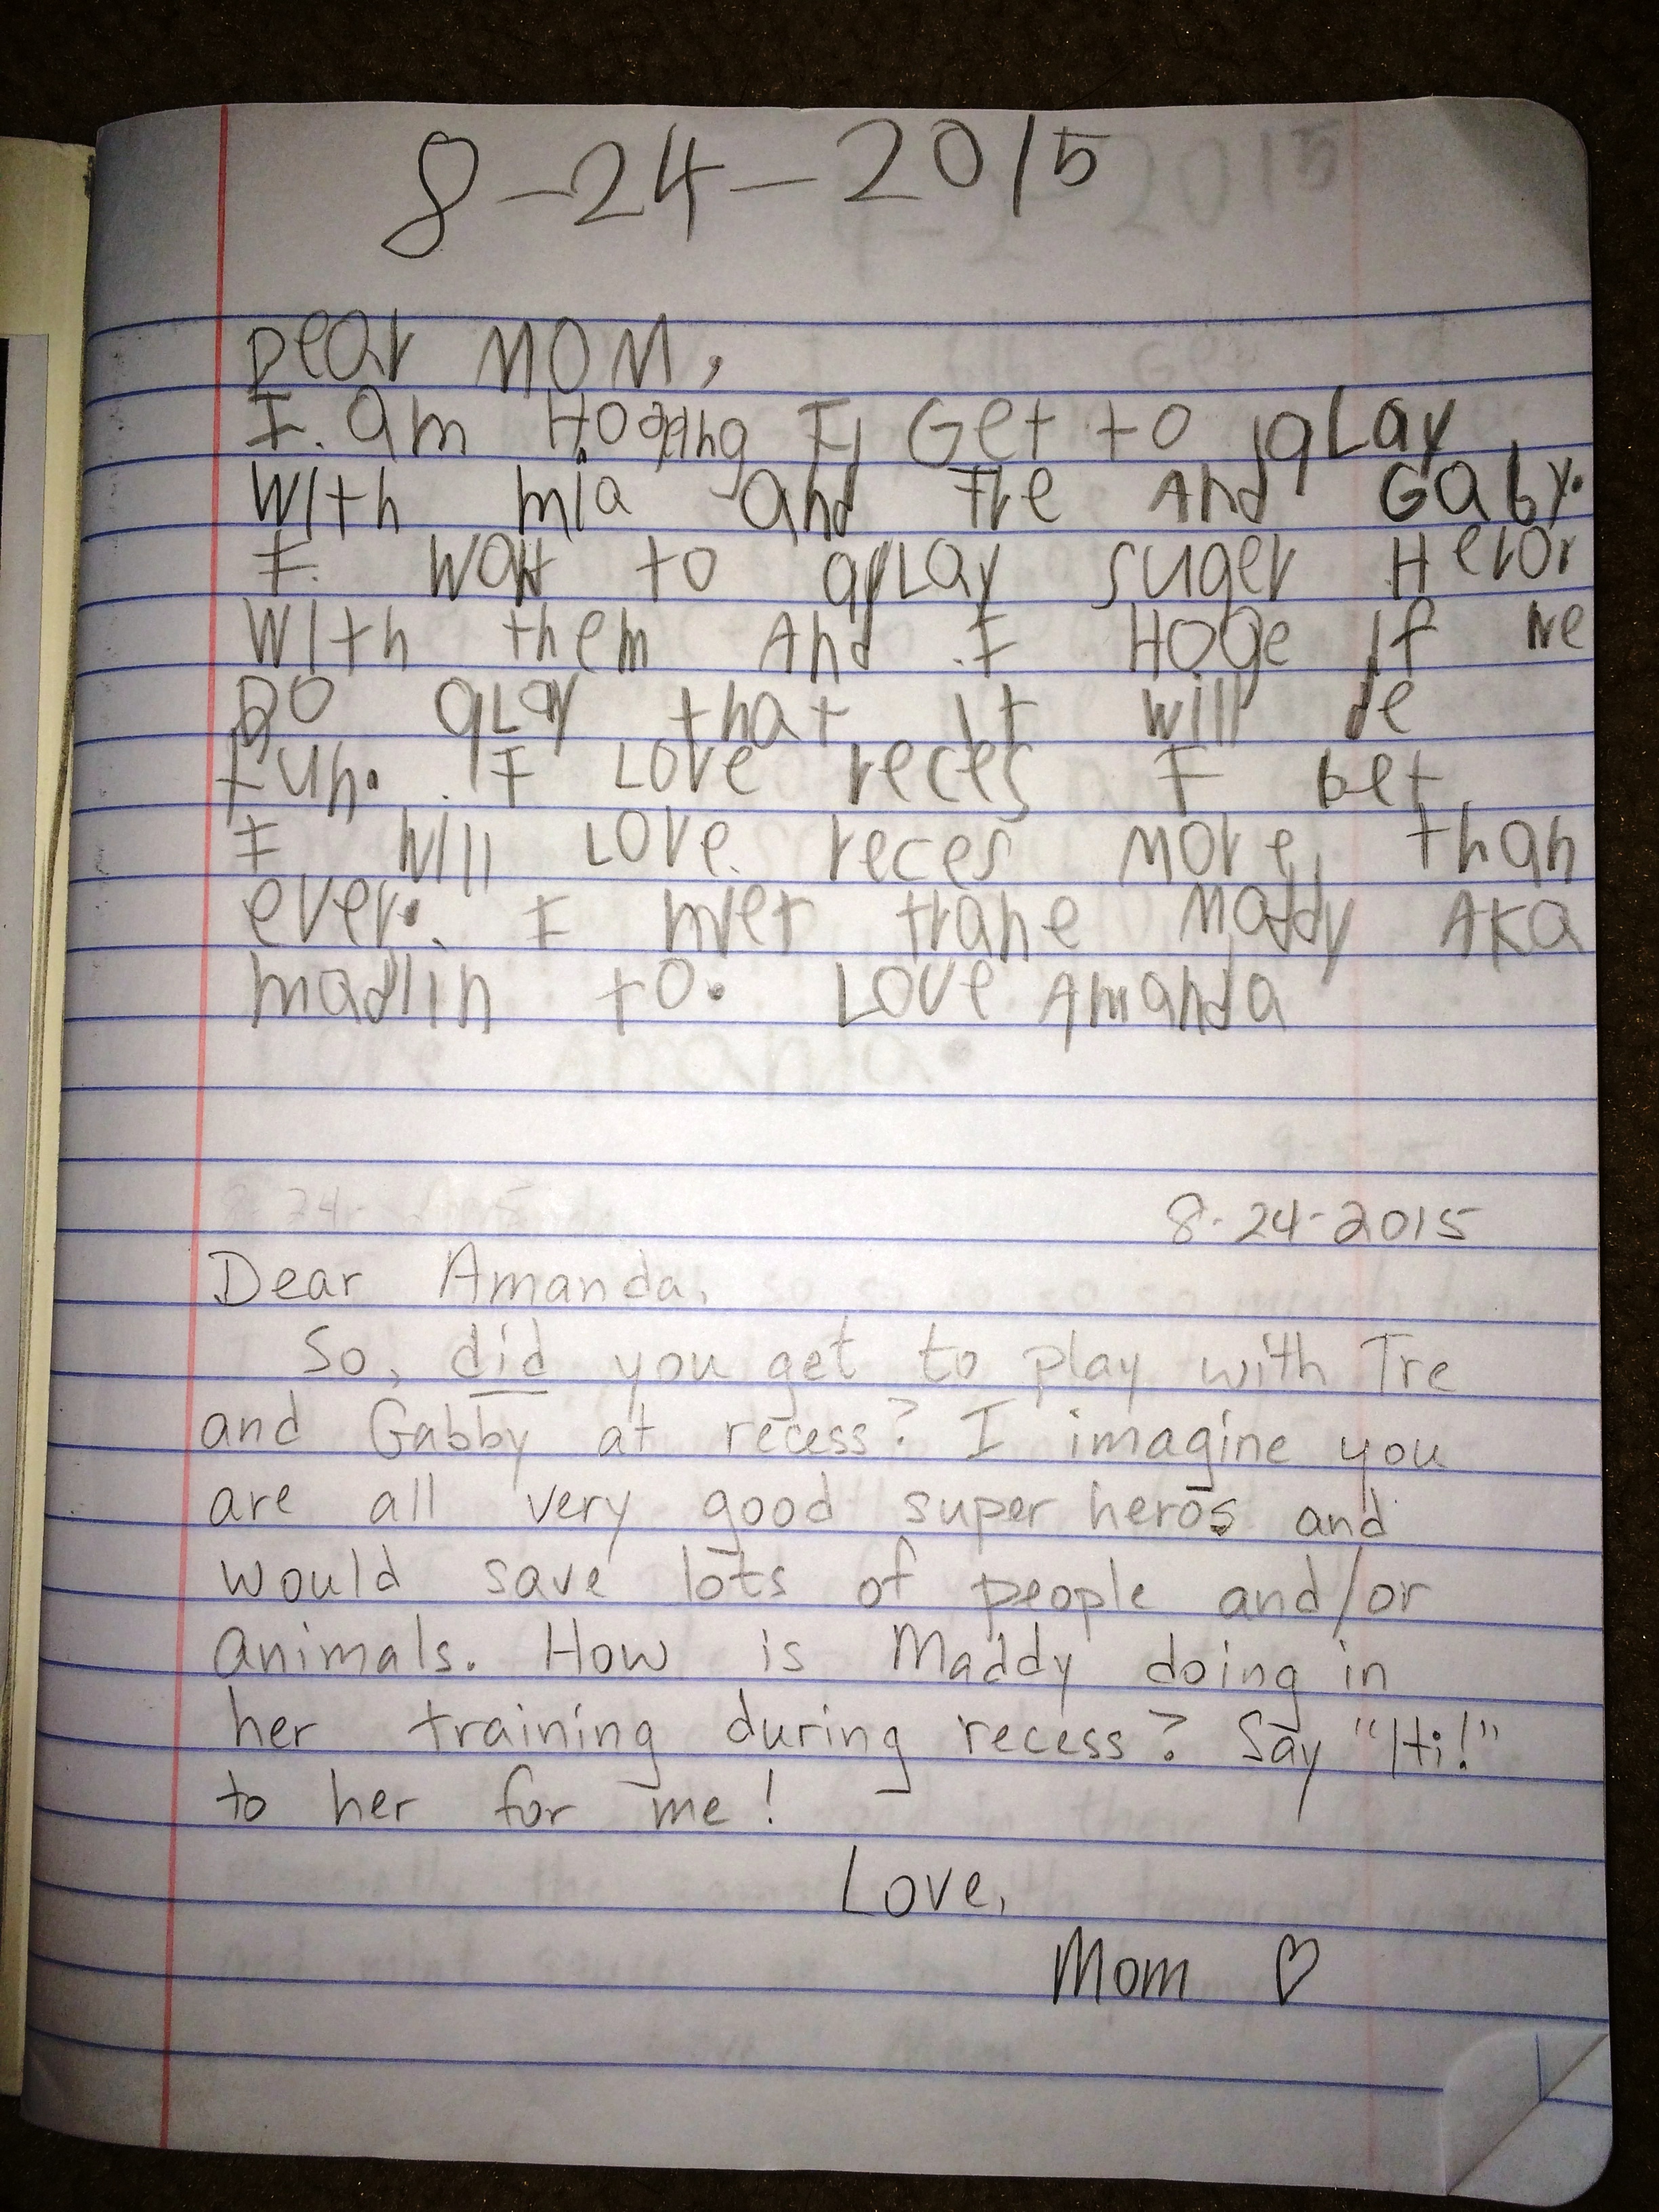 8-24-2015
Dear MOM,
I am Hopping I Get to play
With mia and Tre And Gaby.
I want to play suger Heror
With them And I Hoge If we
DO qLay that It will be
fun. I Love reces I bet
I will Love reces More than
ever. I met trane Maddy AKA
madlin to. Love Amanda
8-24-2015
Dear Amanda,
So, did you get to play with Tre
and Gabby at recess? I imagine you
are all very good super heros and
would save lots of people and/or
animals. How is Maddy doing in
her training during recess? Say "Hi!"
to her for me!
Love,
Mom ♡